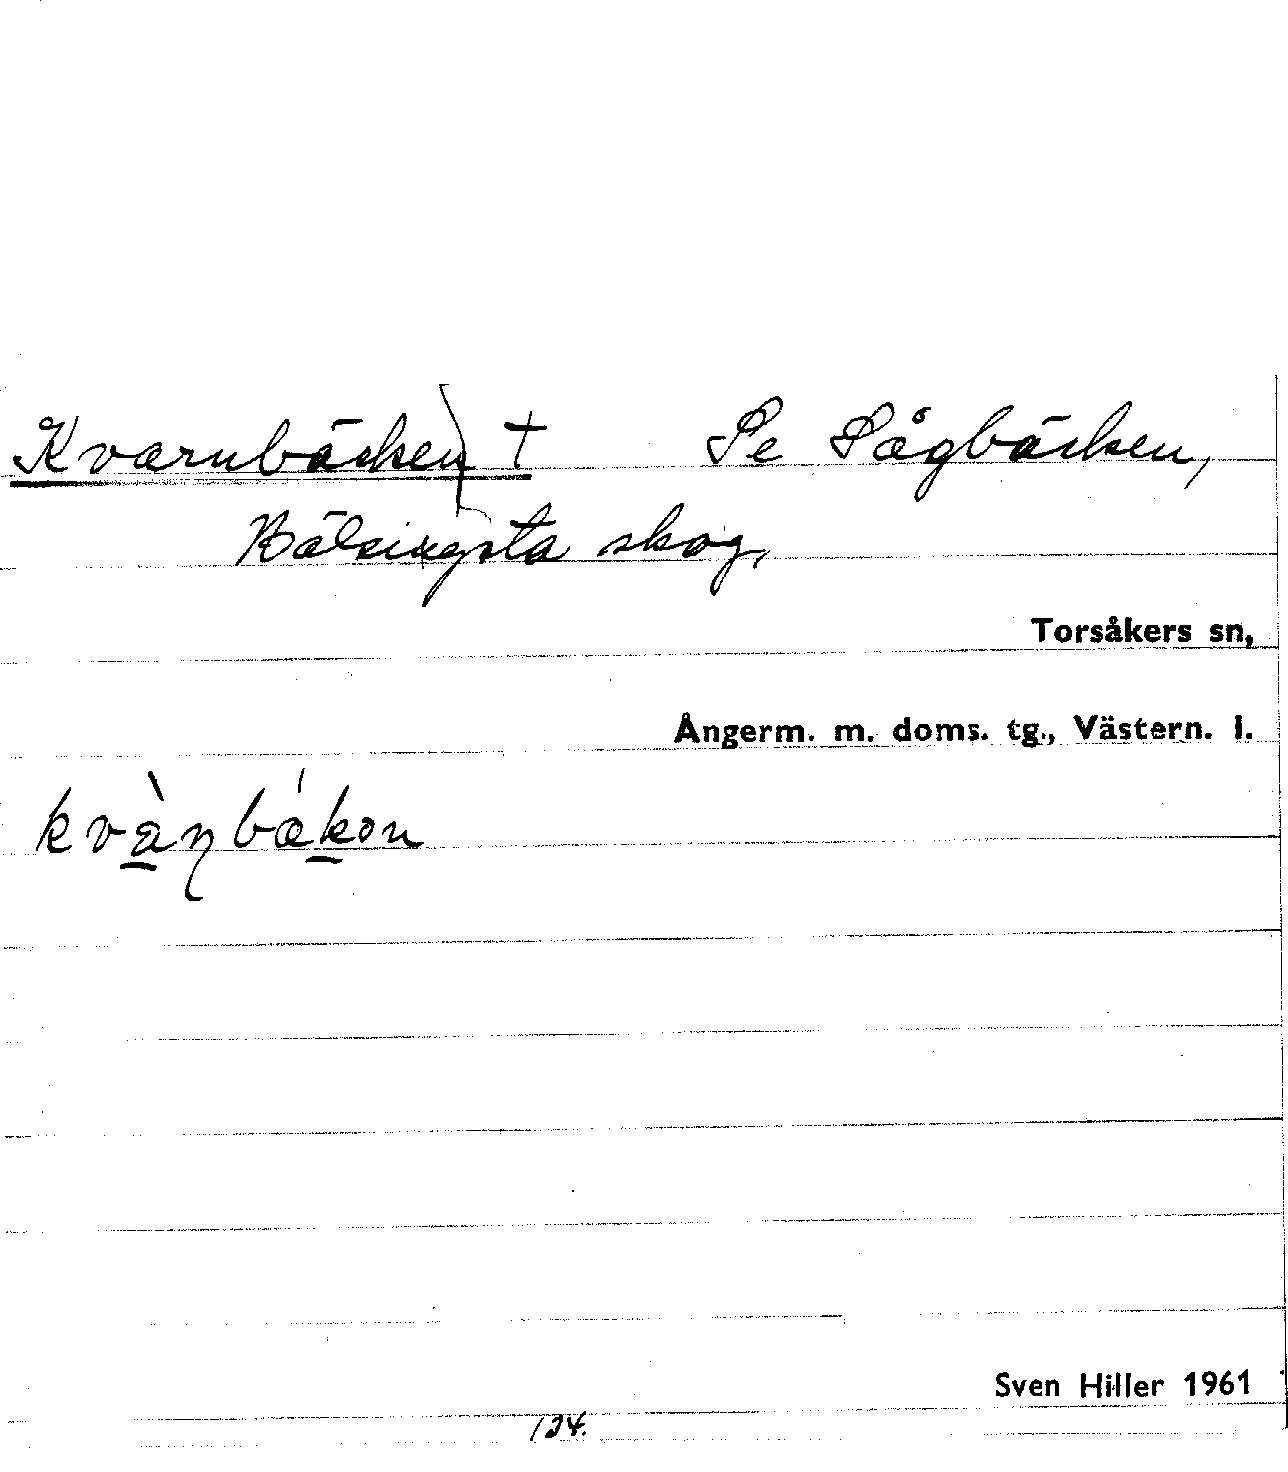 Kvarnbäcken) † Se Sågbäcken,
Bålsingsta skog,
Torsåkers sn,
Ångerm. m. doms. tg., Västern. l.
kvàɳbákon
Sven Hiller 1961
134.